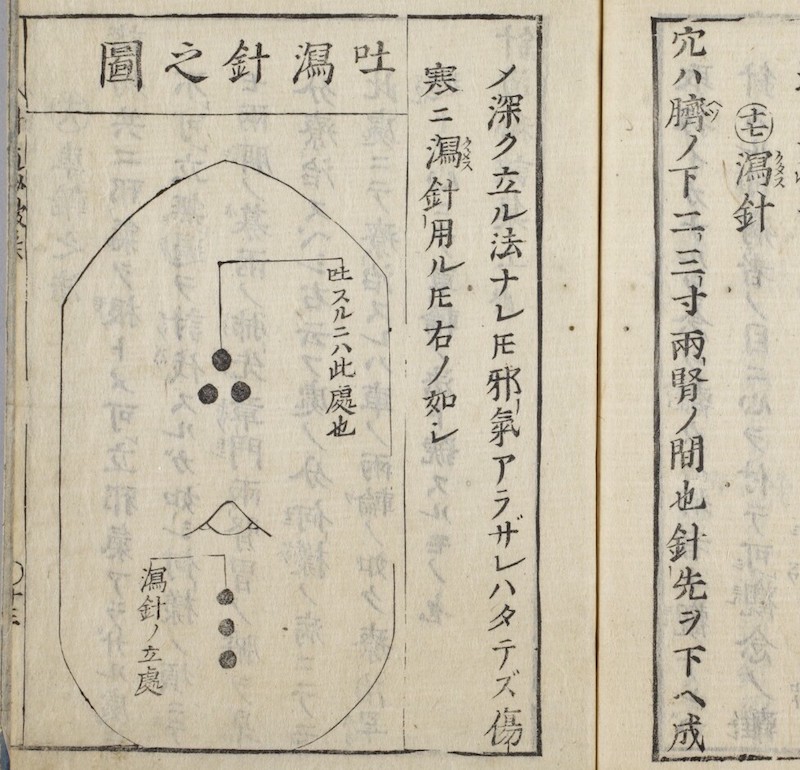 ㊆瀉針
穴ハ臍ノ下二三寸兩腎ノ間也針先ヲ下ヘ成
メ深ク立ル法ナレ𪜈邪氣アラザレハタテズ傷
寒ニ瀉針用ル𪜈右ノ如シ
吐瀉針之圖
吐スルニハ此處也
瀉針ノ立處